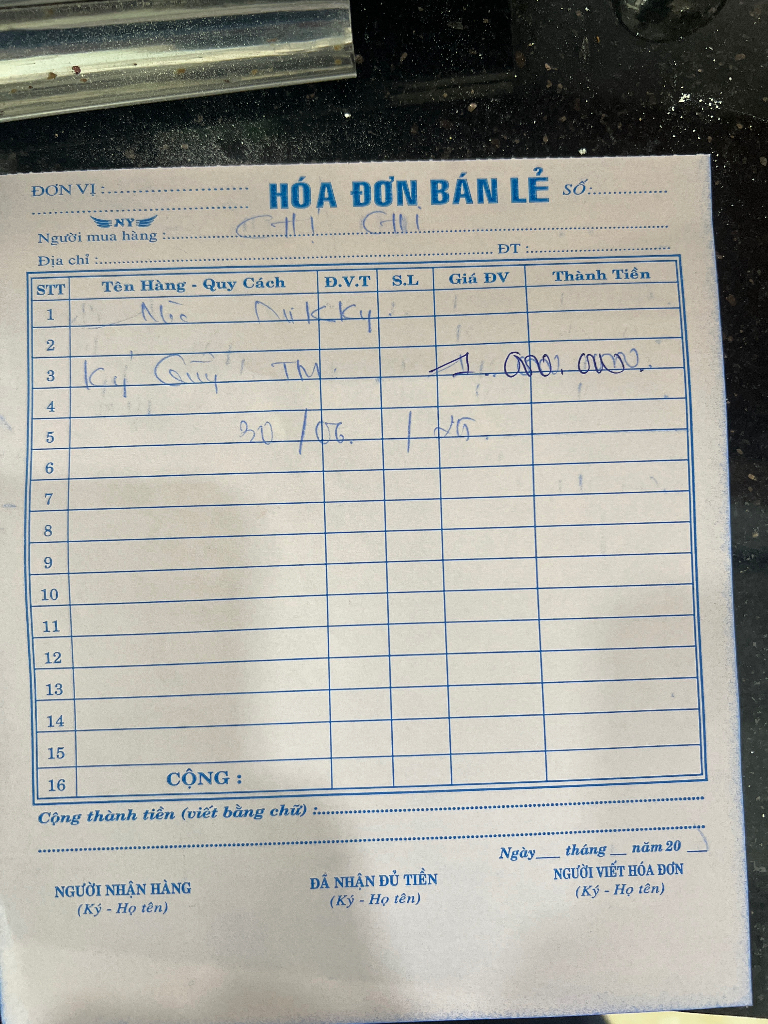 ĐƠN VỊ :
HÓA ĐƠN BÁN LẺ
SỐ:
NY
Người mua hàng : CHỊ CHI
Địa chỉ : ĐT :
STT Tên Hàng - Quy Cách Đ.V.T S.L Giá ĐV Thành Tiền
1
2
3 Ký Quỹ 1.000.000
4
5 30 / 06 /
6
7
8
9
10
11
12
13
14
15
16 CỘNG :
Cộng thành tiền (viết bằng chữ) :
Ngày tháng năm 20
NGƯỜI NHẬN HÀNG ĐÃ NHẬN ĐỦ TIỀN NGƯỜI VIẾT HÓA ĐƠN
(Ký - Họ tên) (Ký - Họ tên) (Ký - Họ tên)